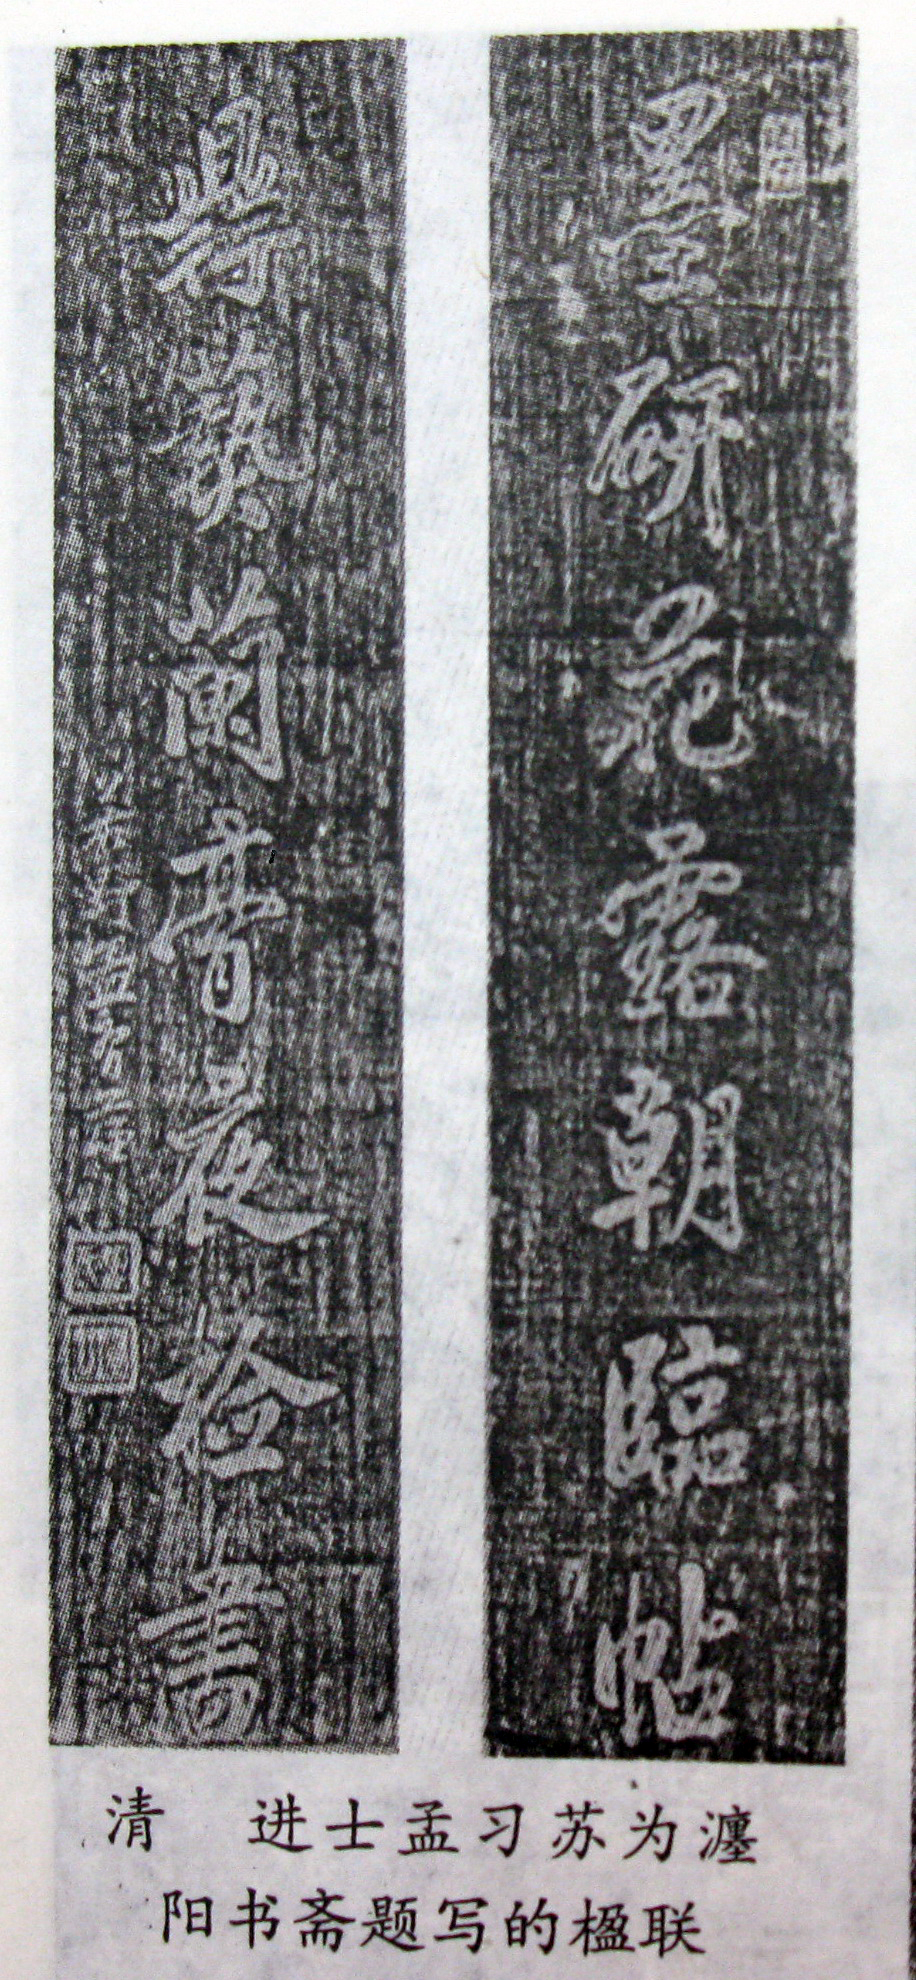 墨研花露朝臨帖
鼎爇蘭膏夜檢書
清 进士孟习苏为瀍
阳书斋题写的楹联